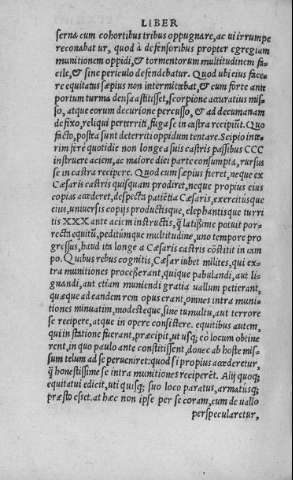 LIBER
serna cum cohortibus tribus oppugnare, ac ui irrumpe
reconabat ur, quod à defensoribus propter egregiam
munitionem oppidi, & tormentorum multitudinem fa-
cile, & sine periculo defendebatur. Quod ubi eius face-
re equitatus sæpius non intermittebat, & cum forte ante
portum turma densa astitisset, scorpione accuratius mis-
so, atque eorum decurione percusso, & ad decumanam
defixo, reliqui perterriti, fuga se in castra recipiūt. Quo
facto, postea sunt deterriti oppidum tentare. Scipio inte-
rim ferè quotidie non longe à suis castris passibus CCC
instruere aciem, ac maiore diei parte consumpta, rursus
se in castra recipere. Quod cum sæpius fieret, neque ex
Cæsaris castris quisquam prodiret, neque propius eius
copias accederet, despecta patiētia Cæsaris, exercitusque
eius, uniuersis copijs productisque, elephantisque turri
tis XXX ante aciem instructis, q̃ latissime potuit por-
recta equitū, peditūmque multitudine, uno tempore pro
gressus, haud ita longe à Cæsaris castris cōstitit in cam
po. Quibus rebus cognitis, Cæsar iubet milites, qui ex-
tra munitiones processerant, quique pabulandi, aut li-
gnandi, aut etiam muniendi gratia uallum petierant,
quæque ad eandem rem opus erant, omnes intra muni-
tiones minuatim, modesteque, sine tumultu, aut terrore
se recipere, atque in opere consistere. equitibus autem,
qui in statione fuerant, præcipit, ut usq; eò locum obtine
rent, in quo paulo ante constitissent, donec ab hoste mis-
sum telum ad se perueniret: quod si propius accederetur,
q̃ honestissime se intra munitiones reciperēt. Alij quoq;
equitatui edicit, uti quisq; suo loco paratus, armatusq;
præstò esset. at hæc non ipse per se coram, cum de uallo
perspecularetur,